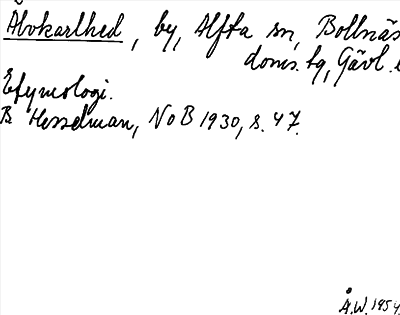 Älvkarlhed, by, Alfta sn, Bollnäs
doms. tg, Gävl. l
Etymologi.
B. Hesselman, NoB 1930, s. 47.
Å.W. 1954.